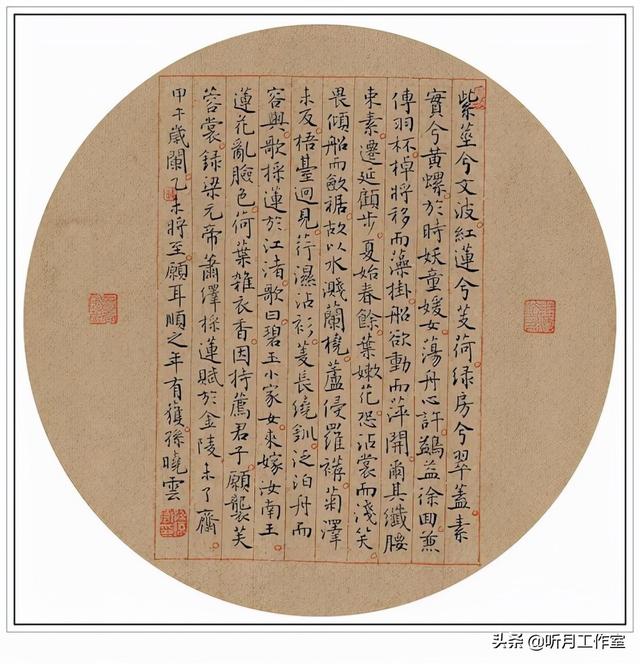 紫莖兮文波紅蓮兮芰荷綠房兮翠蓋素
實兮黃螺於時妖童媛女蕩舟心許鷁益徐回兼
傳羽杯棹將移而藻掛船欲動而萍開爾其纖腰
束素遷延顧步夏始春餘葉嫩花恐沾裳而淺笑
畏傾船而斂裾故以水濺蘭橈蘆侵羅菊澤
未反梧臺迴見荇濕沾衫菱長繞釧泛泊舟而
容與歌採蓮於江渚歌曰碧玉小家女來嫁汝南王
蓮花亂臉色荷葉雜衣香因持薦君子願襲芙
蓉裳錄梁元帝蕭繹採蓮賦於金陵未了齋
甲午歲闌乙未將至願耳順之年有獲孫曉雲
头条 @听月工作室